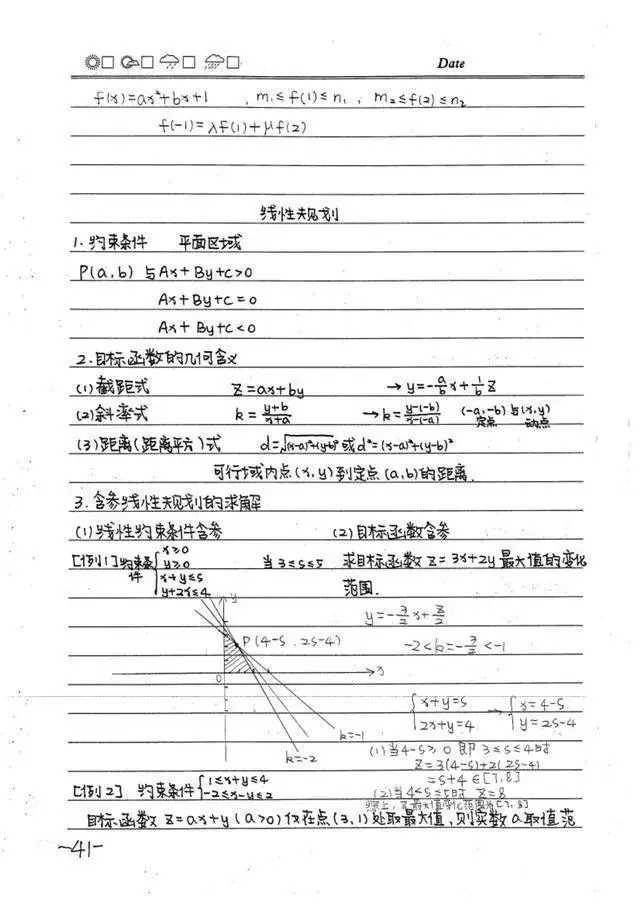 Date
f(x)=ax²+bx+1 , m₁≤f(1)≤n₁, m₂≤f(2)≤n₂
f(-1)=λf(1)+μf(2)
线性规划
1. 约束条件 平面区域
P(a,b) 与Ax+By+c>0
Ax+By+c=0
Ax+By+c<0
2.目标函数的几何含义
(1)截距式 Z=ax+by →y=-a/b x+1/b Z
(2)斜率式 k=(y+b)/(x+a) →k=(y-(-b))/(x-(-a)) (-a,-b)与(x,y)
定点 动点
(3)距离(距离平方)式 d=√((x-a)²+(y-b)²) 或d²=(x-a)²+(y-b)²
可行域内点(x,y)到定点(a,b)的距离.
3.含参线性规划的求解
(1)线性约束条件含参 (2)目标函数含参
[例1]约束条件{x≥0 当3≤s≤5 求目标函数Z=3x+2y最大值的变化
y≥0
x+y≤s
y+2x≤4 范围.
y
y=-3/2 x+Z/2
P(4-s, 2s-4)
-2<k=-3/2<-1
0
x
{x+y=s → {x=4-s
2x+y=4 y=2s-4
k=-1
k=-2
(1)当4-s≥0即3≤s≤4时
Z=3(4-s)+2(2s-4)
=s+4∈[7,8]
(2)当4<s≤5时 Z=8
综上,Z最大值变化范围为[7,8]
[例2] 约束条件{1≤x+y≤4
-2≤x-y≤2
目标函数Z=ax+y(a>0)仅在点(3,1)处取最大值,则实数a取值范
-41-